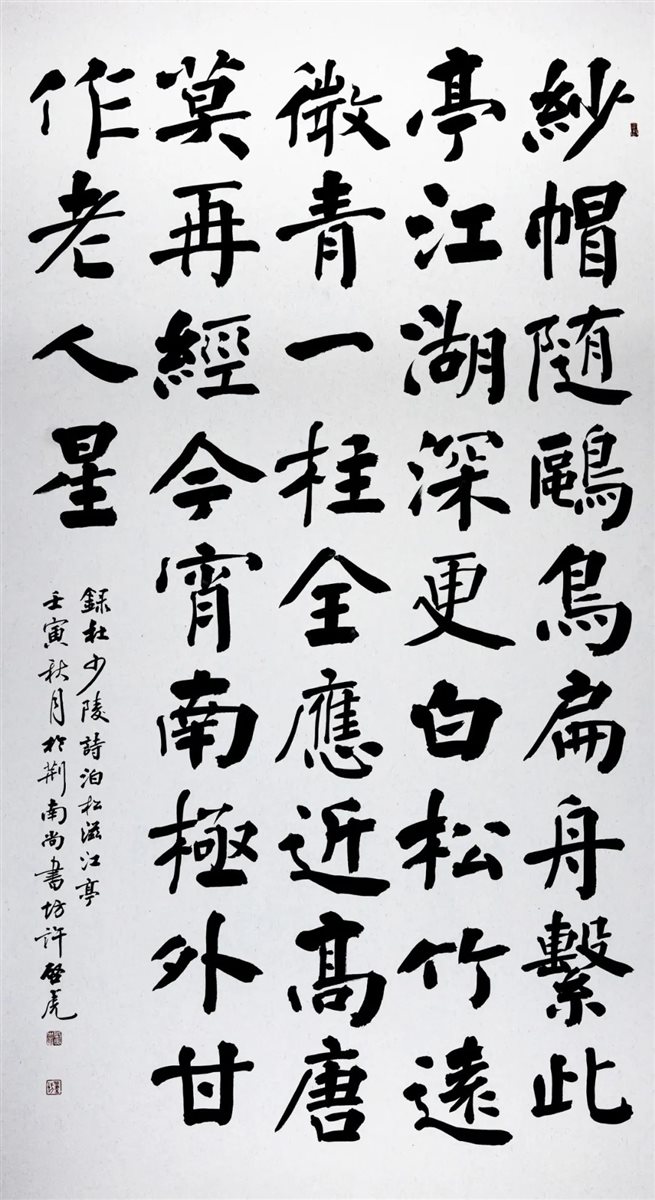 紗帽随鷗鳥扁舟繫此
亭江湖深更白松竹遠
微青一柱全應近高唐
莫再經今宵南極外甘
作老人星
録杜少陵詩泊松滋江亭
壬寅秋月於荆南尚書坊許啓虎